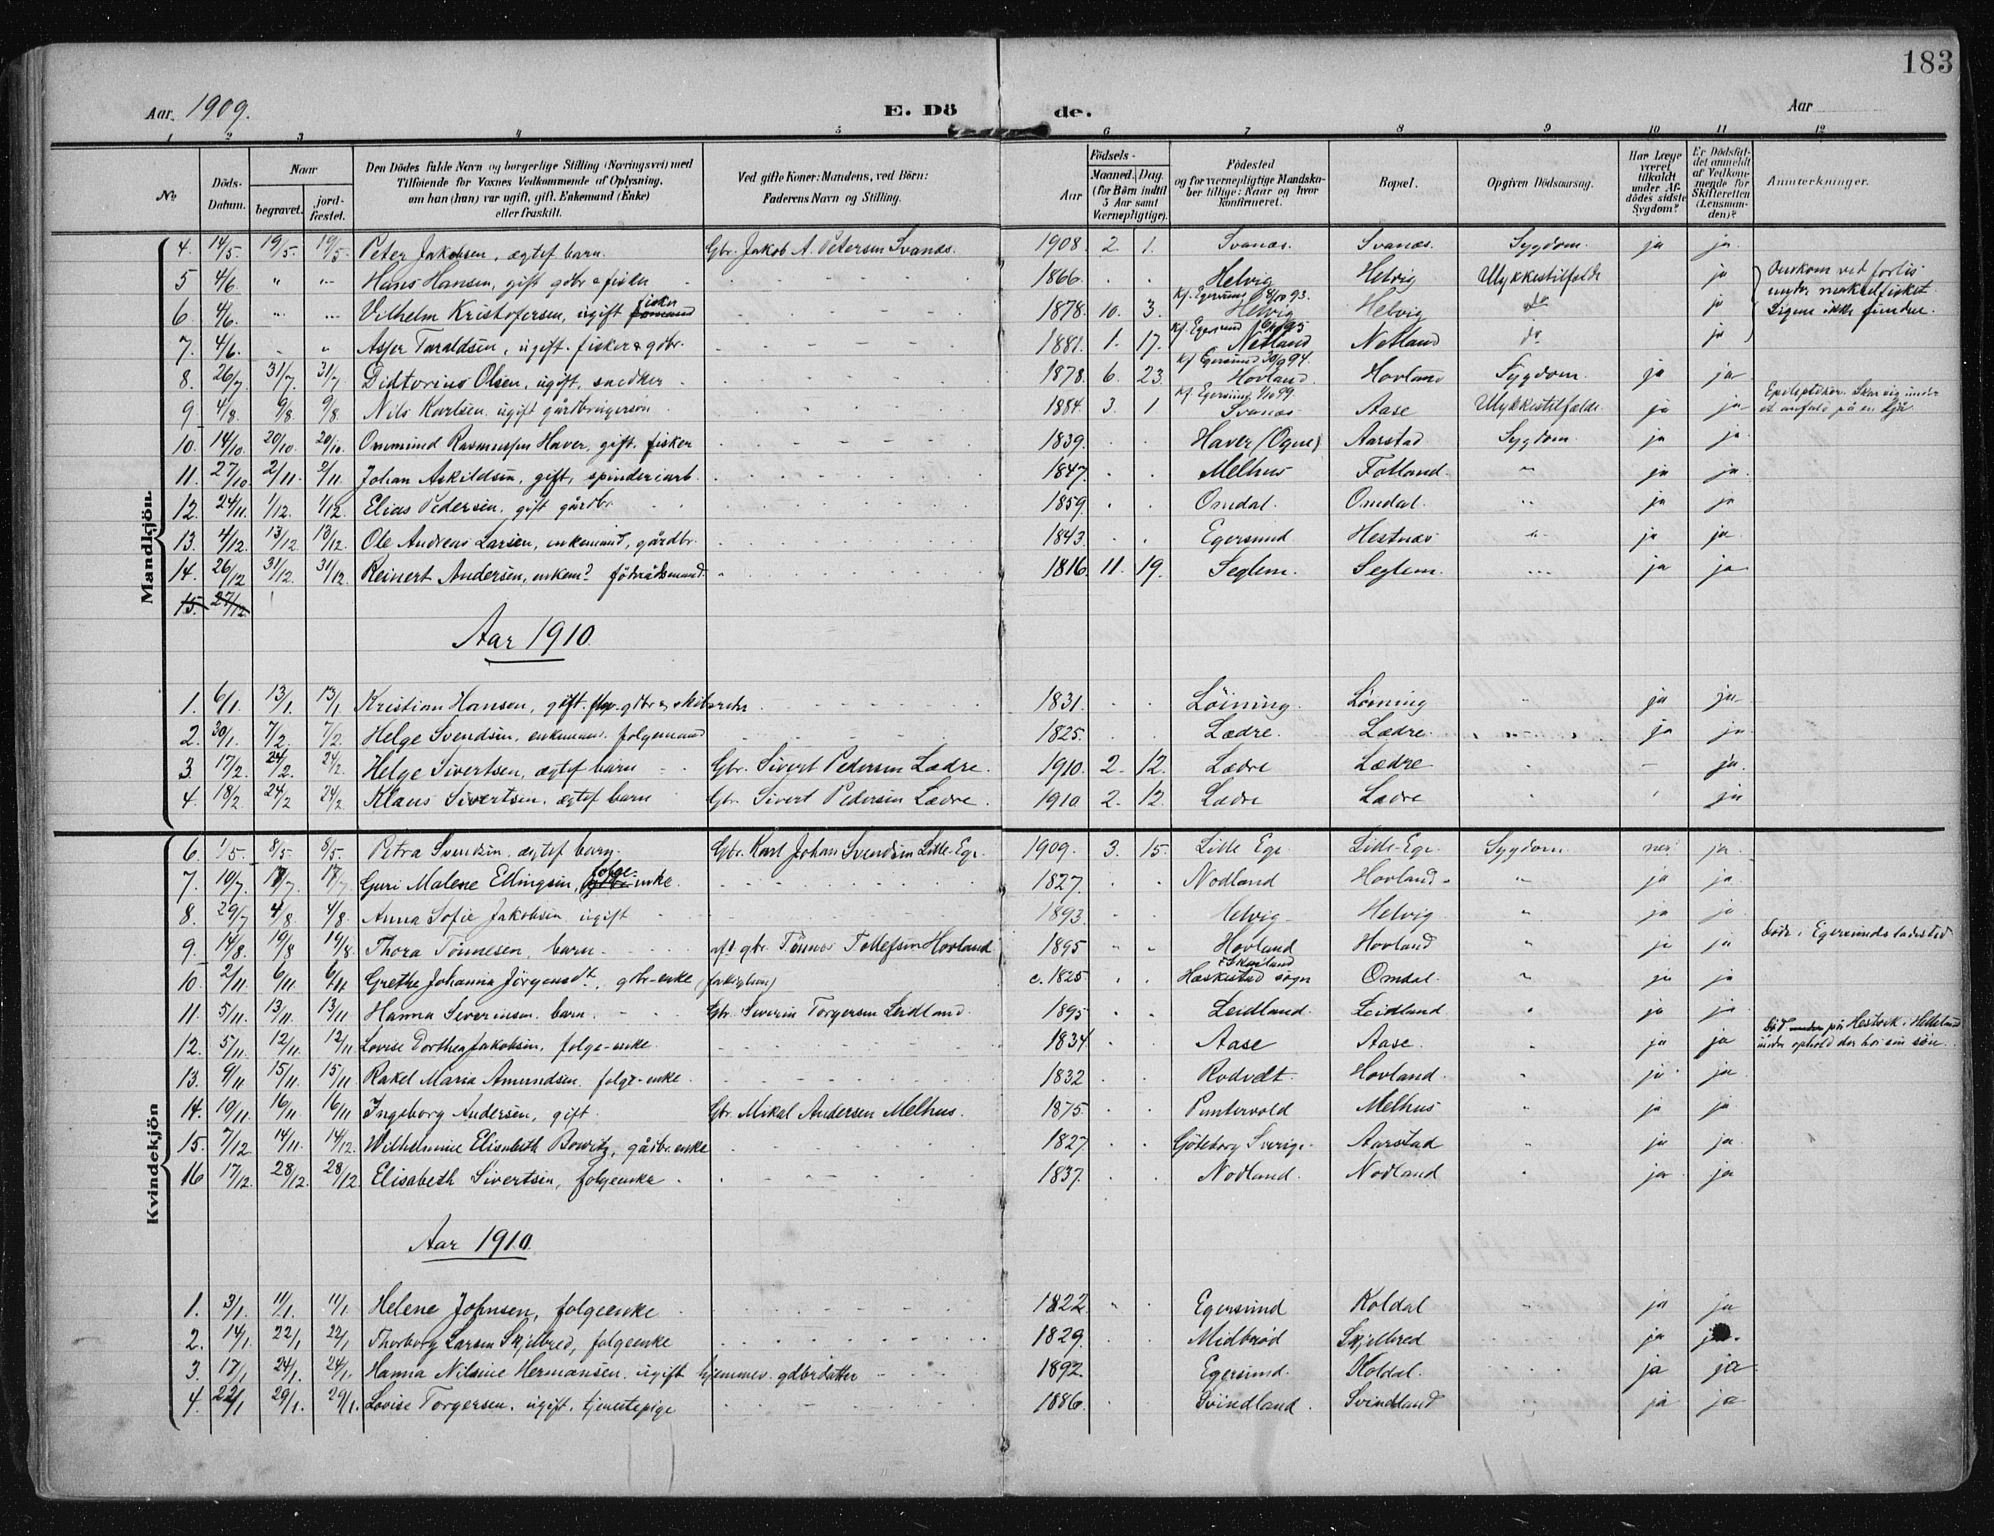 183
Aar 1909. E. Dö de. Aar
1 2 3 4 5 6 7 8 9 10 11 12
No. Döds-Datum. Naar begravet. jord-fæstet. Den Dödes fulde Navn og borgerlige Stilling (Næringsvei) med Tilföiende for Voxnes Vedkommende af Oplysning, om han (hun) var ugift, gift, Enkemand (Enke) eller fraskilt. Ved gifte Koner: Mandens, ved Börn: Faderens Navn og Stilling. Födsels- Aar Maaned. Dag. (for Börn indtil 5 Aar samt Værnepligtige). Födested og for værnepligtige Mandska-ber tillige: Naar og hvor konfirmeret. Bopæl. Opgiven Dödsaarsag. Har Læge været tilkaldt under Af-dödes sidste Sygdom? Er Dödsfal-det anmeldt af Vedkom-mende for Skifteretten (Lensman-den)? Anmærkninger.
Mandkjön.
4. 14/5 19/5. 19/5. Peter Jakobsen, ægtef barn. Gbr. Jakob A. Petersen Svanæs. 1908. 2. 1. Svanæs. Svanæs. Sygdom. ja ja.
5 4/6 " " Hans Hansen, gift gdbr & fisker 1866. Helvig Helvig Ulykkestilfælde ja Omkom ved forlis under makrelfisket. Ligene ikke fundne.
6. 4/6. " " Vilhelm Kristofersen, ugift fisker 1878. 10. 3. Kf. Egersund 8/10 93. Helvig Helvig do ja
7. 4/6. " " Asjer Taraldsen, ugift. fisker & gdbr. 1881. 1. 17. Kf. Egersund 95 Netland Netland do ja
8. 26/7 31/7. 31/7 Didtorius Olsen, ugift, snedker 1878. 6. 23. Kf Egersund 30/9 94. Hovland. Hovland Sygdom. ja ja
9. 4/8. 9/8. 9/8. Nils Karlsen. ugift gårdbrugersøn 1884. 3. 1 Kf. Egersund 1/10 99. Svanæs Aase Ulykkestilfælde ja ja Epileptiker. Skar sig under et anfald på en ljå.
10. 14/10 20/10. 20/10. Ommund Rasmussen Haver, gift. fisker 1839. Haver (Ogne) Aarstad Sygdom ja ja.
11. 27/10 2/11. 2/11. Johan Askildsen, gift, spinderiarb. 1847. Melhus Fotland. " ja ja.
12. 24/11. 1/12. 1/12. Elias Pedersen, gift gårdbr. 1859. Omdal. Omdal. " ja ja
13. 4/12. 13/12. 13/12. Ole Andreas Larsen, enkemand, gårdbr. 1843 Egersund Hestnæs " ja ja.
14. 26/12 31/12. 31/12 Reinert Andersen, enkem? föderådsmand. 1816. 11. 19. Seglem. Seglem. " ja ja
15. 27/12.
Aar 1910.
1. 6/1. 13/1. 13/1 Kristian Hansen, gift. gdbr & skibsreder 1831. Löining. Löining " ja ja
2. 30/1. 7/2. 7/2. Helge Svendsen, enkeman. folgemand 1825. Lædre. Lædre. " ja ja
3. 17/2. 24/2. 24/2. Helge Sivertsen, ægtef barn Gbr. Sivert Pedersen Lædre. 1910. 2. 12. Lædre Lædre " ja.
4. 18/2. 24/2 24/2. Klaus Sivertsen. ægtef barn Gbr. Sivert Pedersen Lædre. 1910 2. 12. Lædre Lædre " ja
Kvindekjön
6. 1/5. 8/5. 8/5. Petra Svendsen. ægtef barn. Gbr. Karl Johan Svendsen Lille-Ege. 1909. 3. 15. Lille Ege. Lille-Ege. Sygdom. nei ja.
7. 10/7 17/7. 17/7 Guri Malene Ellingsen, folge-enke. 1827. Nodland Hovland " ja ja
8. 29/7 4/8. 4/8. Anna Sofie Jakobsen ugift 1893. Helvig Helvig. " ja ja
9. 14/8. 19/8 19/8. Thora Tönnesen, barn. afd. gbr. Tönnes Tollefsen Hovland 1895 " " Hovland Hovland " ja ja Döde i Egersunds ladested
10. 2/11. 6/11 6/11 Grethe Johanna Jørgensdt., gbr-enke (fattiglem) c. 1825 Heskestad sogn Omdal. " ja ja
11. 5/11. 13/11. 13/11 Hanna Severinsen. barn. Gbr. Severin Torgersen Leidland. 1895 Leidland. Leidland " ja ja
12. 5/11. 12/11. 12/11 Lovise Dorthea Jakobsen, folge-enke. 1834 Aase Aase. ja ja Död på Hestvik i Helleland under ophold der hos sin sön.
13. 9/11. 15/11. 15/11 Rakel Maria Amundsen, folge-enke. 1832 Rodvelt. Hovland. " ja ja
14. 10/11. 16/11. 16/11 Ingeborg Andersen, gift. Gbr. Mikal Andersen Melhus. 1875. Puntervold Melhus " ja ja
15. 7/12. 14/11. 14/12. Wilhelmine Elisabeth Bowitz, gårdbr. enke 1827. Göteborg Sverige Aarstad ja ja
16 17/12. 28/12. 28/12. Elisabeth Sivertsen, folgeenke 1837. Nodland. Nodland " ja ja
Aar 1910.
1. 3/1. 11/1. 11/1. Helene Johnsen, folgeenke 1822. Egersund Koldal " ja ja
2. 14/1. 22/1 22/1 Thorborg Larsen Skjelbred, folgeenke 1829. Midbröd Skjelbred ja ja
3. 17/1 24/1. 24/1. Hanna Nilsine Hermansen. ugift hjemmev. gdbrdatter 1892. Egersund. Koldal. ja ja
4. 22/1 29/1. 29/1. Lovise Torgersen, ugift. tjenestepige 1886. Svindland. Svindland ja ja